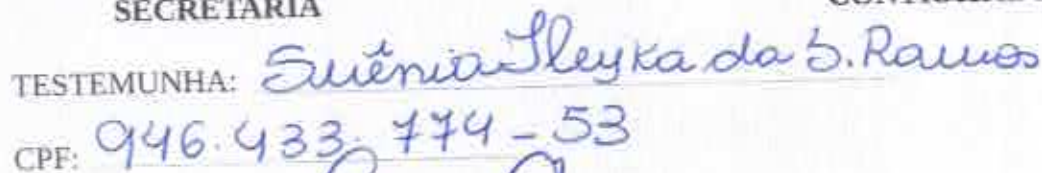 SECRETÁRIA
TESTEMUNHA: Suênia Sleyka da S. Ramos
CPF: 946.433.774-53